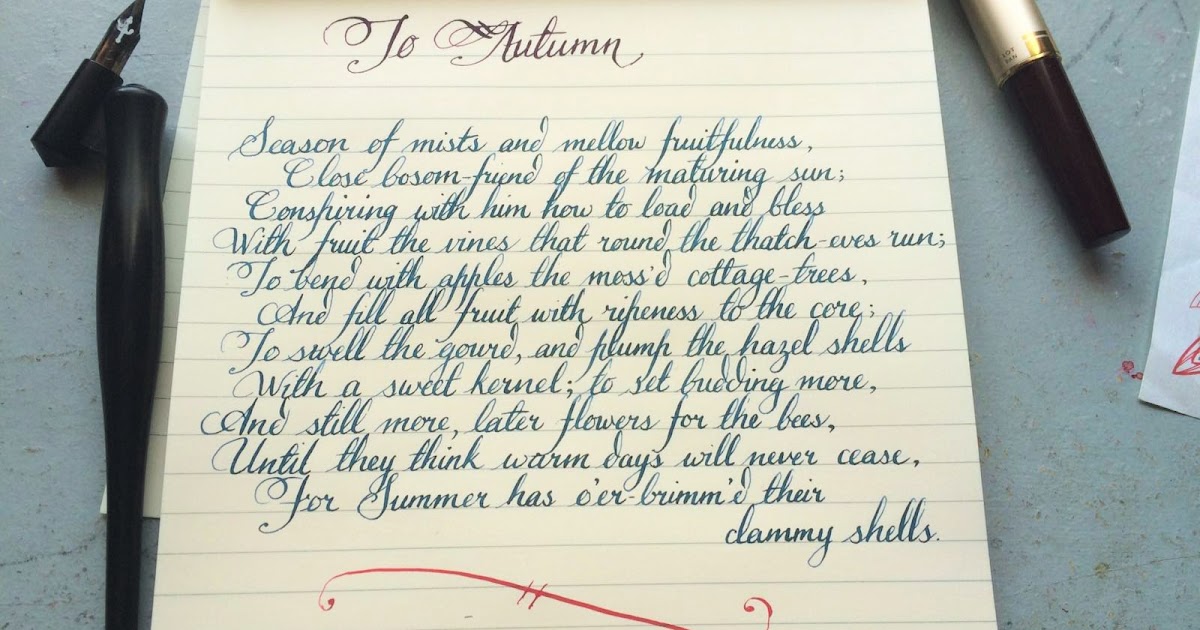 To Autumn
Season of mists and mellow fruitfulness,
Close bosom-friend of the maturing sun;
Conspiring with him how to load and bless
With fruit the vines that round the thatch-eves run;
To bend with apples the moss'd cottage-trees,
And fill all fruit with ripeness to the core;
To swell the gourd, and plump the hazel shells
With a sweet kernel; to set budding more,
And still more, later flowers for the bees,
Until they think warm days will never cease,
For Summer has o'er-brimm'd their
clammy shells.